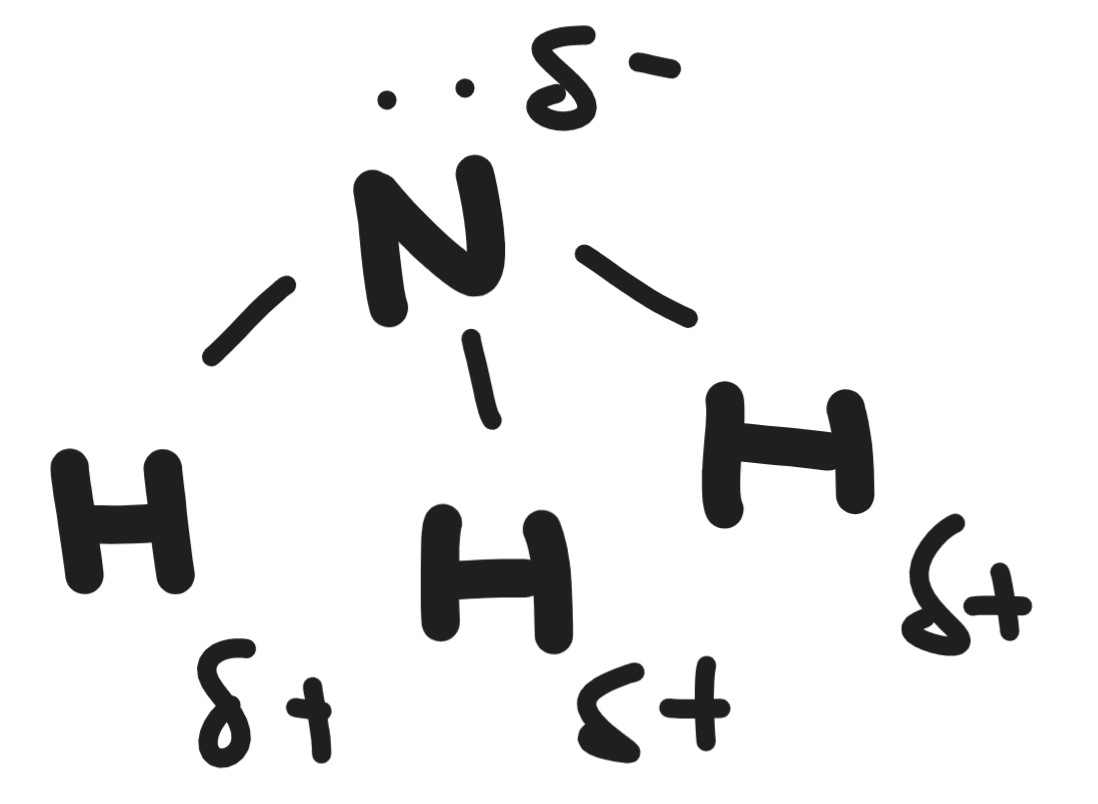 ·· δ-
N
H H H
δ+ δ+ δ+